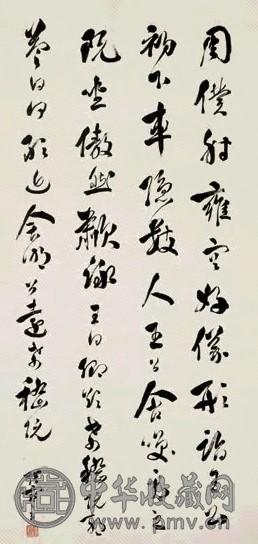 周僕射雍容好儀形詣王公
初下車隱數人王公含笑看之
既坐傲然歗詠王曰卿欲希嵇阮耶
答曰何敢近舍明公遠希嵇阮
中华收藏网